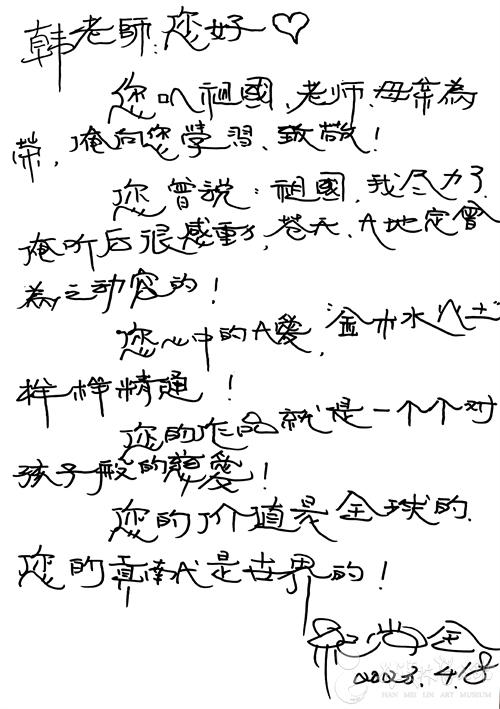 韩老師:您好♡
您以祖國、老师、母亲為
榮,俺向您學習、致敬!
您曾説:祖國,我尽力了.
俺听后很感動,苍天、大地定會
為之动容的!
您心中的大愛,“金木水火土”
样样精通!
您的作品就是一个个对
孩子般的慈愛!
您的价值是全球的.
您的是世界的!
2023.4.18
HAN MEI LIN ART MUSEUM